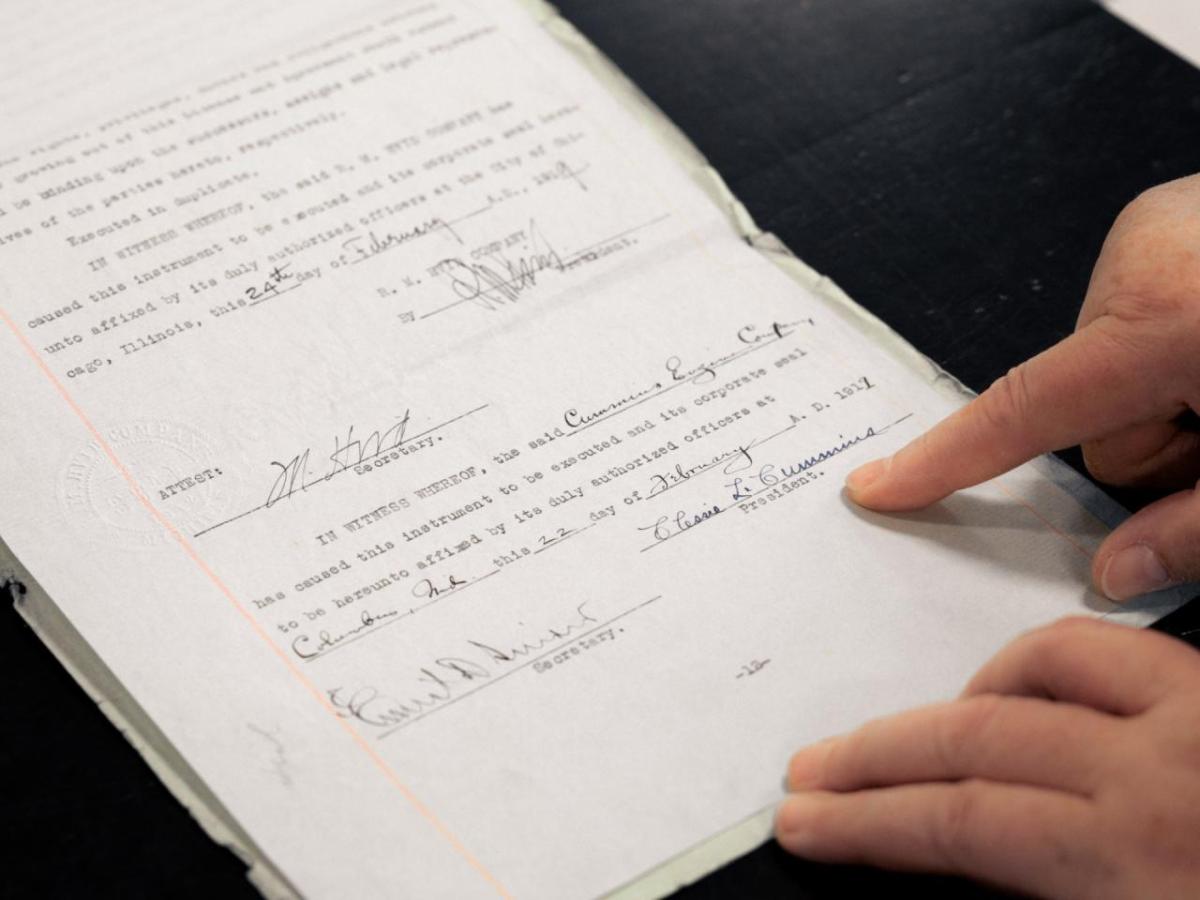 growing out of this license and agreement should
be binding upon the successors, assigns and legal
ives of the parties hereto, respectively.
Executed in duplicate.
IN WITNESS WHEREOF, the said R. M. HVID COMPANY has
caused this instrument to be executed and its corporate seal here-
unto affixed by its duly authorized officers at the City of Chi-
cago, Illinois, this 24th day of February A.D., 1919
R. M. HVID COMPANY
By
President.
ATTEST:
Secretary.
IN WITNESS WHEREOF, the said Cummins Engine Company,
has caused this instrument to be executed and its corporate seal
to be hereunto affixed by its duly authorized officers at
Columbus, Ind. this 22 day of February A. D. 191
Clessie L. Cummins
President.
Secretary.
-12-